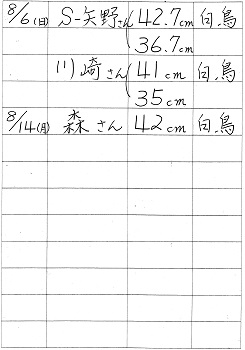 8/6(日) S-矢野さん 42.7cm 白鳥
36.7cm
川崎さん 41cm 白鳥
35cm
8/14(月) 森さん 42cm 白鳥